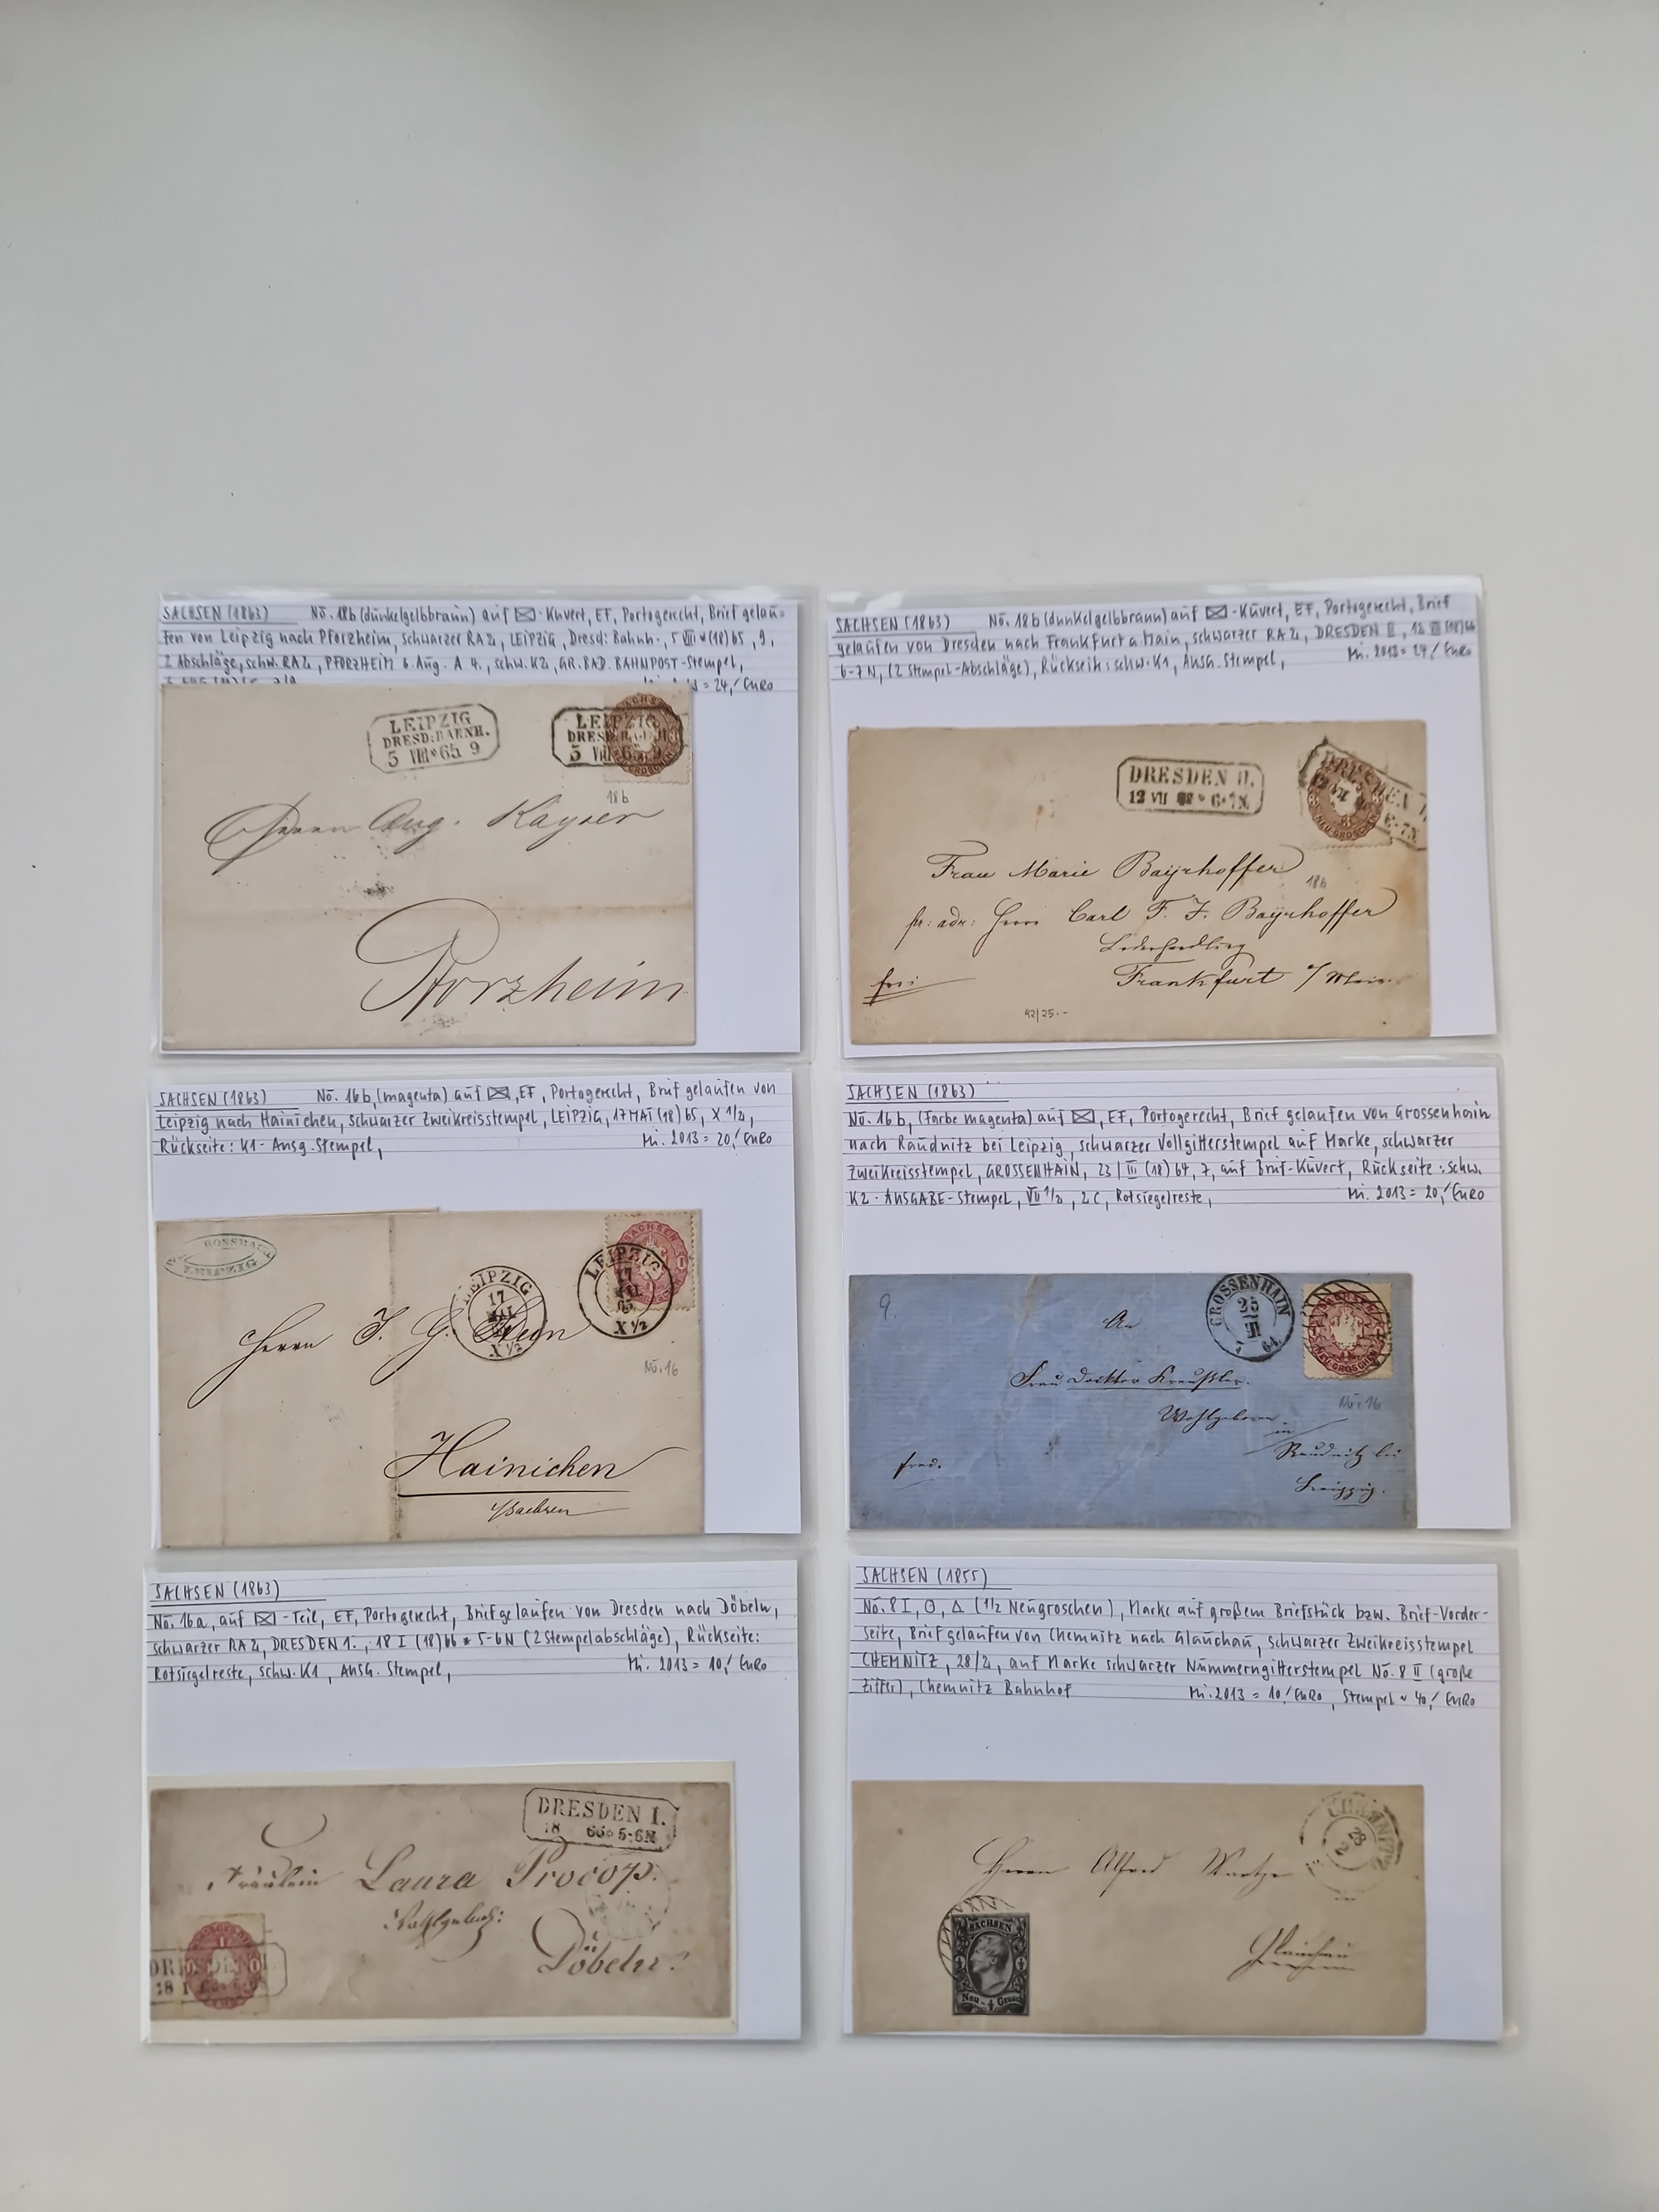 SACHSEN (1863) No. 18b (dunkelgelbbraun) auf -Kuvert, EF, Portogerecht, Brief gelau=
fen von Leipzig nach Pforzheim, schwarzer RA2, LEIPZIG, Dresd: Bahnh., 5 VIII * (18)65, 9,
2 Abschläge, schw. RA2, PFORZHEIM 6. Aug. A 4., schw. K2, GR. BAD. BAHNPOST-Stempel,
= 24,- EURO
LEIPZIG
DRESD: BAHNH.
5 VIII * 65 9
LEIPZIG
DRESD: BAHNH.
5 VIII 65 9
18b
Herrn Aug. Kayser
Pforzheim
SACHSEN (1863) No. 18b (dunkelgelbbraun) auf -Kuvert, EF, Portogerecht, Brief
gelaufen von Dresden nach Frankfurt a Main, schwarzer RA2, DRESDEN II, 12 VII (18)66
6-7 N, (2 Stempel-Abschläge), Rückseite: schw. K1, Ausg. Stempel, Mi. 2013 = 24,- EURO
DRESDEN II.
12 VII 6-7N
NEUGROSCHEN
18b
Frau Marie Bayrhoffer
pr: adr: Herrn Carl F. F. Bayrhoffer
Lederhandlung
Frankfurt a/Main.
frei
42/25.--
SACHSEN (1863) No. 16b, (magenta) auf , EF, Portogerecht, Brief gelaufen von
Leipzig nach Hainichen, schwarzer Zweikreisstempel, LEIPZIG, 17 MAI (18)65, X 1/2,
Rückseite: K1- Ausg. Stempel, Mi. 2013 = 20,- EURO
ROSSBACH
LEIPZIG
LEIPZIG
17
MAI
X 1/2
LEIPZIG
17
MAI
65
X 1/2
SACHSEN
Herrn J. G. Stein
No. 16
Hainichen
i/Sachsen
SACHSEN (1863)
No. 16b, (Farbe magenta) auf , EF, Portogerecht, Brief gelaufen von Grossenhain
nach Raudnitz bei Leipzig, schwarzer Vollgitterstempel auf Marke, schwarzer
Zweikreisstempel, GROSSENHAIN, 23/III (18)64, 7, auf Brief-Kuvert, Rückseite: schw.
K2-AUSGABE-Stempel, VII 1/2, 2C, Rotsiegelreste, Mi. 2013 = 20,- EURO
9.
GROSSENHAIN
25
III
64
NEUGROSCHEN
An
Frau Docktor Kreußler.
No. 16
Wohlgeboren
in
Reudnitz bei
Leipzig.
fred.
SACHSEN (1863)
No. 16a, auf -Teil, EF, Portogerecht, Brief gelaufen von Dresden nach Döbeln,
schwarzer RA2, DRESDEN I., 18 I (18)66 * 5-6N (2 Stempelabschläge), Rückseite:
Rotsiegelreste, schw. K1, Ausg. Stempel, Mi. 2013 = 10,- EURO
DRESDEN I.
18 66 5-6N
Fräulein Laura Procop.
Wohlgeboren:
Döbeln.
DRESDEN
18 I
SACHSEN (1855)
No. 8 I, (1/2 Neugroschen), Marke auf großem Briefstück bzw. Brief-Vorder-
seite, Brief gelaufen von Chemnitz nach Glauchau, schwarzer Zweikreisstempel
CHEMNITZ, 28/2, auf Marke schwarzer Nummerngitterstempel No. 8 II (große
Ziffer), Chemnitz Bahnhof Mi. 2013 = 10,- EURO, Stempel ~ 40,- EURO
CHEMNITZ
28
2
Herrn Alfred
in
Glauchau
SACHSEN
Neu-Grosch